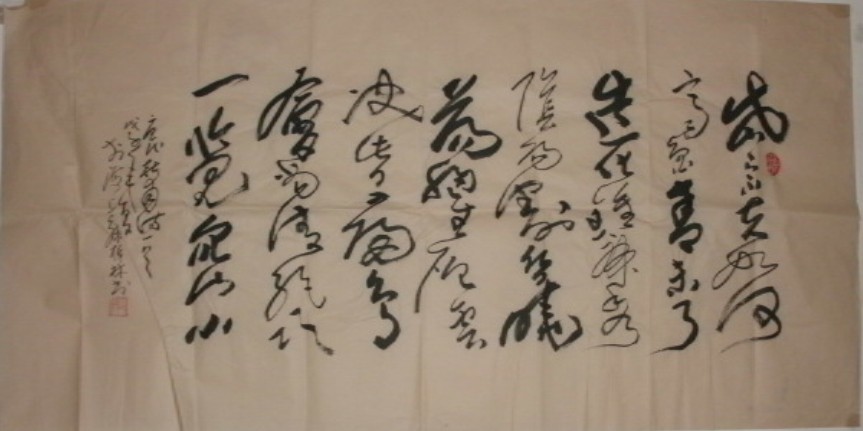 岱宗夫如何
齐鲁青未了
造化钟神秀
阴阳割昏晓
荡胸生层云
决眥入归鸟
会当凌绝顶
一览众山小
唐代杜甫诗一首